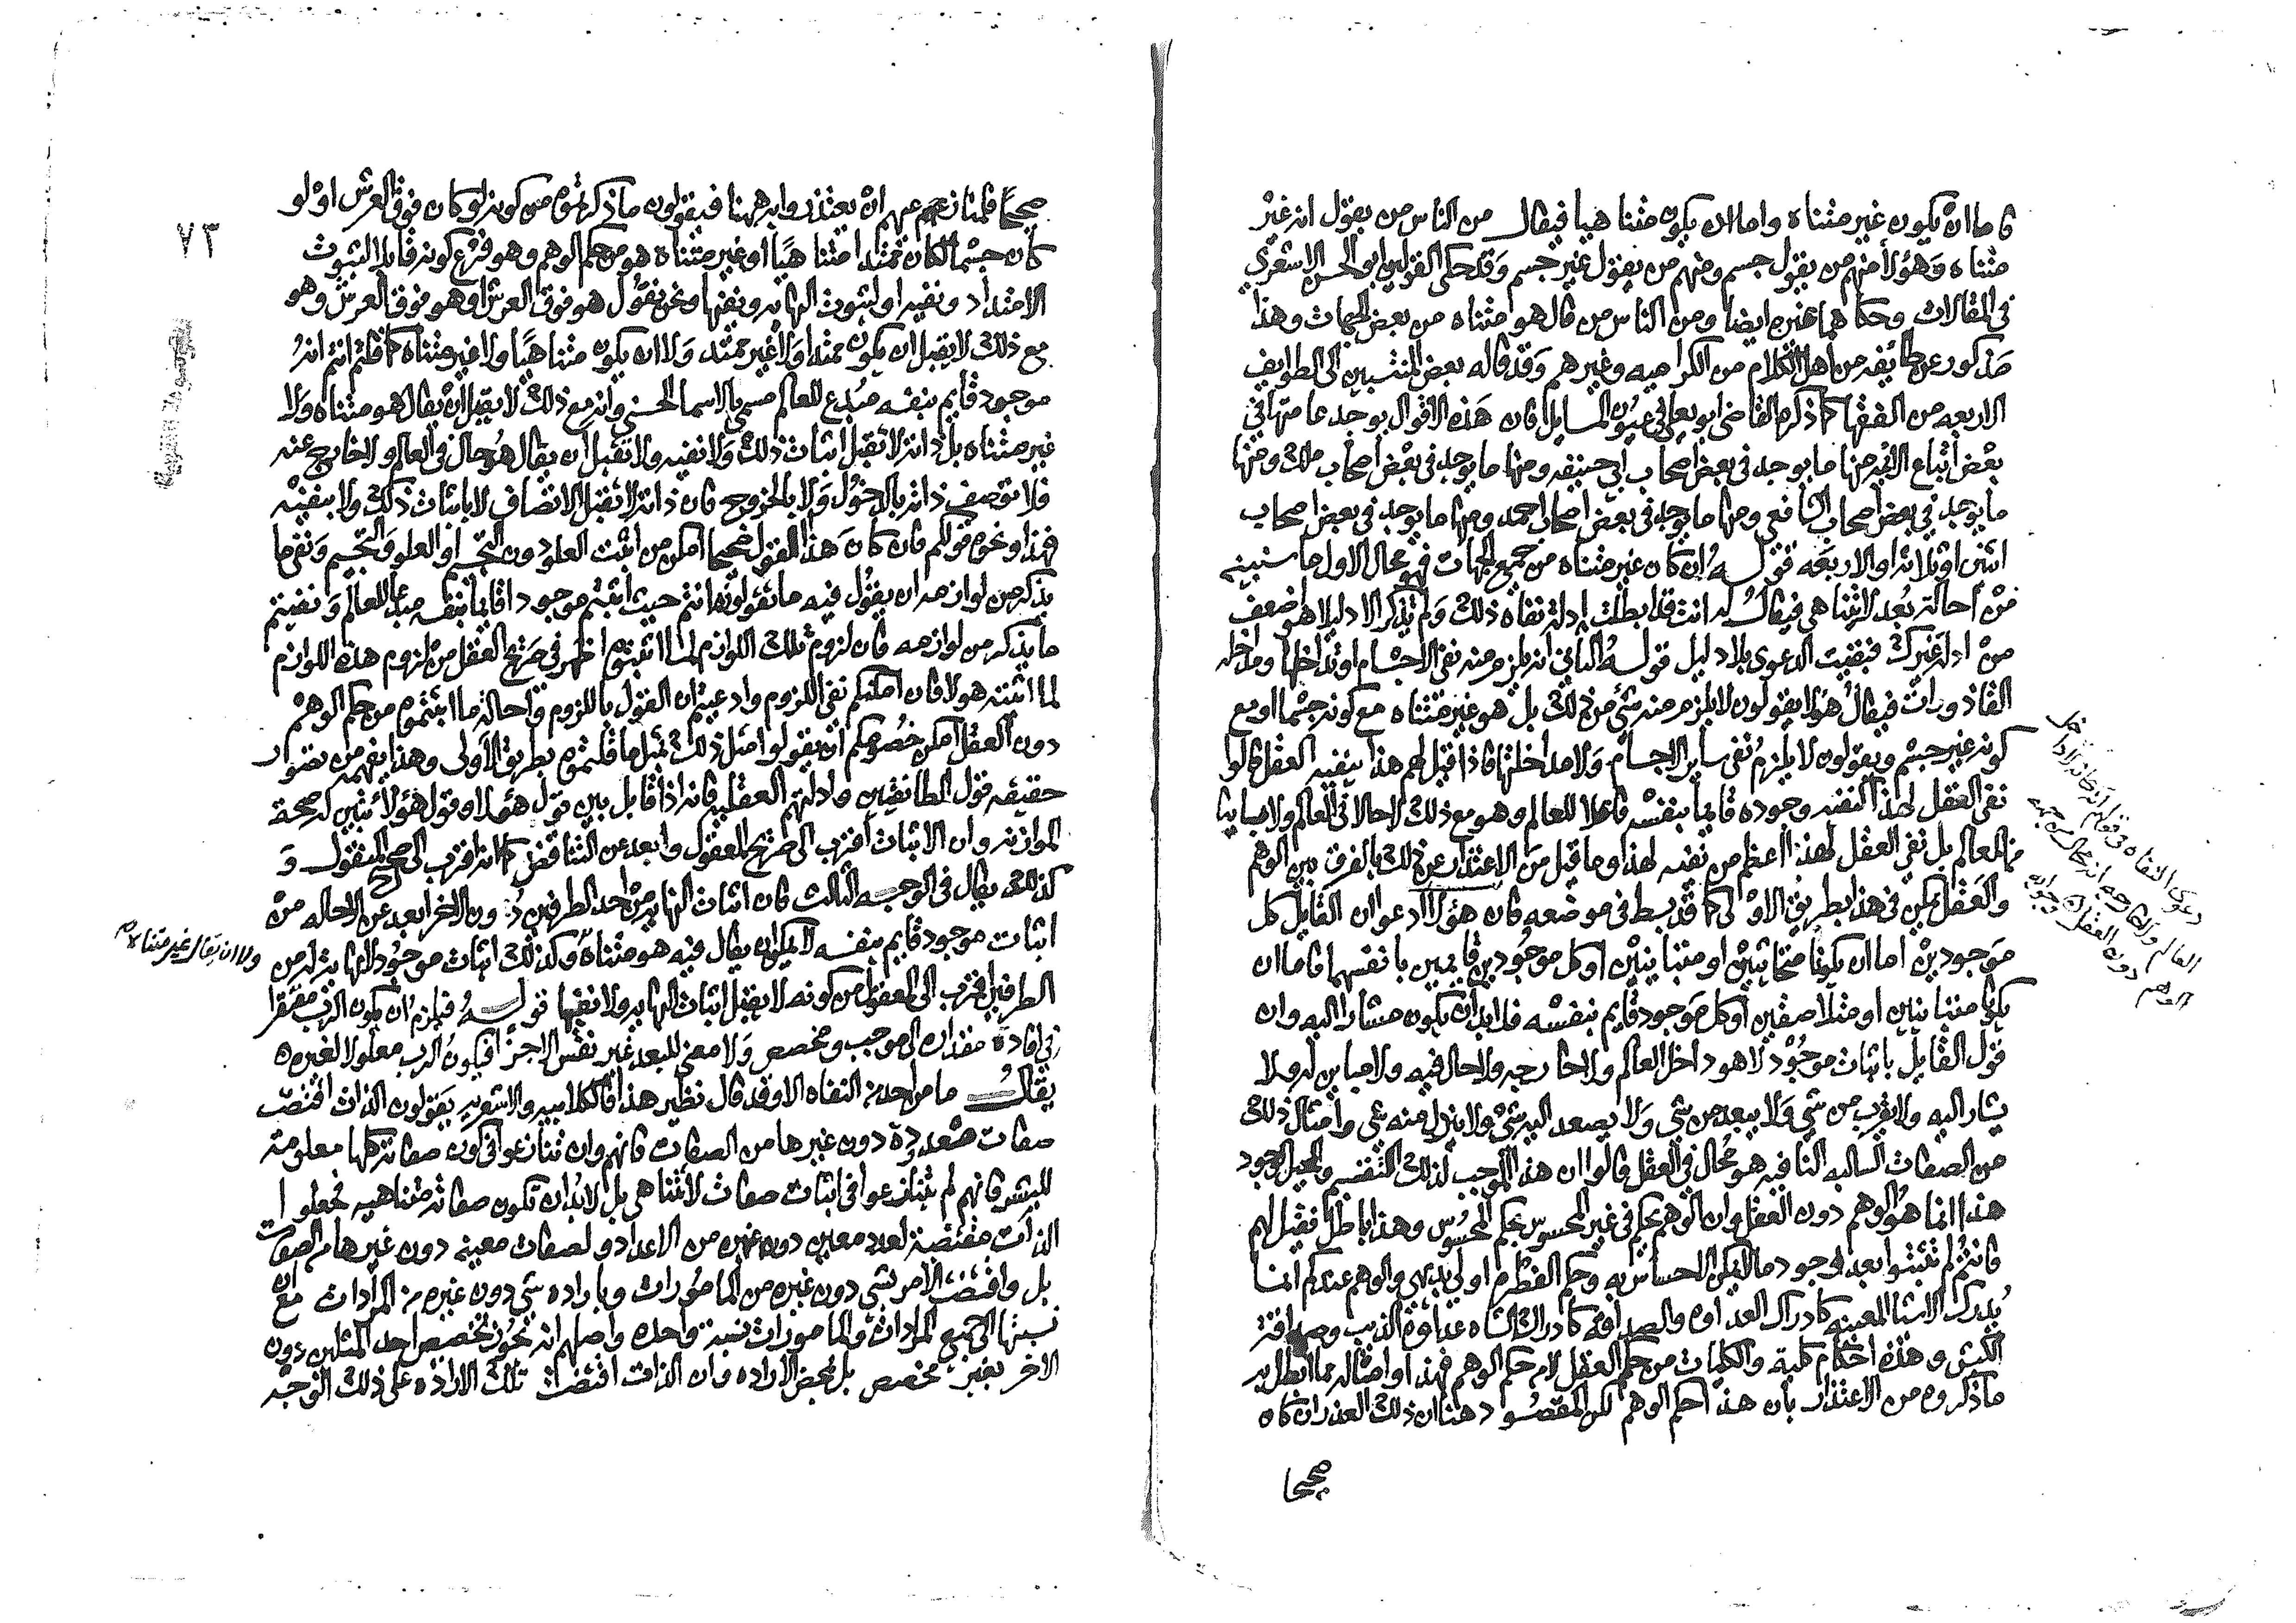 فاما ان يكون غير متناه واما ان يكون متناهيا فيقال من الناس من يقول انه غير
متناه وهؤلا منهم من يقول جسم ومنهم من يقول غير جسم وقد حكى القولين ابو الحسن الاشعري
في المقالات وحكاهما غيره ايضا ومن الناس من قال هو متناه من بعض الجهات وهذا
مذكور عن طائفه من اهل الكلام من الكراميه وغيرهم وقد قاله بعض المنتسبين الى الطوايف
الاربعه من الفقها كما ذكره القاضي ابو يعلى في عيون المسايل فان هذه الاقوال يوجد عامتها في
بعض اتباع الائمه منها ما يوجد في بعض اصحاب ابي حنيفه ومنها ما يوجد في بعض اصحاب ملك ومنها
ما يوجد في بعض اصحاب الشافعي ومنها ما يوجد في بعض اصحاب احمد ومنها ما يوجد في بعض اصحاب
اثنين او ثلاثه او الاربعه قوله ان كان غير متناه من جميع الجهات فهو محال الاول ما سنبينه
من احالة بعد لا يتناهي فيقال له انت قد ابطلت ادلة نفاه ذلك ولم تذكر الا دليلا هو اضعف
من ادلة غيرك فبقيت الدعوى بلا دليل قوله الثاني انه يلزم منه نفي الاجسام او تداخلها ومداخله
القاذورات فيقال هؤلا يقولون لا يلزم منه شي من ذلك بل هو غير متناه مع كونه جسما او مع
كونه غير جسم ويقولون لا يلزم نفي ساير الاجسام ولا مداخلتها فاذا قيل لهم هذا ينفيه العقل قالوا
نفي العقل لهذا كنفيه وجوده قايما بنفسه فاعلا للعالم وهو مع ذلك لا حالا في العالم ولا مباينا
للعالم بل نفي العقل لهذا اعظم من نفيه لهذا وما قيل من الاعتذار عن ذلك بالفرق بين الوهم
والعقل يمكن في هذا بطريق الاولى كما قد بسط في موضعه فان هؤلا ادعوا ان القايل كل
موجودين اما ان يكونا متحايثين او متباينين او كل موجودين قايمين بانفسهما فاما ان
يكونا متباينين او متلاصقين او كل موجود قايم بنفسه فلا بد ان يكون مشارا اليه وان
قول القايل باثبات موجود لا هو داخل العالم ولا خارجه ولا حال فيه ولا مباين له ولا
يشار اليه ولا يقرب من شي ولا يبعد من شي ولا يصعد اليه شي ولا ينزل منه شي وامثال ذلك
من الصفات السالبه النافيه هو محال في العقل قالوا ان هذا الموجب لذلك التقسيم والمحيل لوجود
هذا انما هو الوهم دون العقل وان الوهم يحكم في غير المحسوس بحكم المحسوس وهذا باطل فقيل لهم
فانتم لم تثبتوا بعد وجود ما لا يمكن الاحساس به وحكم الفطره اولي بديهي والوهم عندكم انما
يدرك الاشيا المعينه كادراك العداوه والصداقه كادراك الشاه عداوة الذيب وصداقة
الكبش وهذه احكام كلية والكليات من حكم العقل لا من حكم الوهم فهذا وامثاله مما ابطل به
ما ذكروه من الاعتذار بان هذا حكم الوهم لكن المقصود هنا ان ذلك العذر ان كان
صحيحا
دعوى النفاه
العالم ولا خارجه انه محال من جهه
الوهم دون العقل
٧٣
صحيحا فلمنازعيهم ان يعتذروا به ههنا فيقولون ما ذكرتموه من كونه لو كان فوق العرش او لو
كان جسما لكان ممتدا متناهيا او غير متناه هو من حكم الوهم وهو فرع كونه قابلا لثبوت
الامتداد ونفيه او لثبوت النهايه ونفيها ونحن نقول هو فوق العرش او هو فوق العرش وهو
مع ذلك لا يقبل ان يكون ممتدا ولا غير ممتد ولا ان يكون متناهيا ولا غير متناه كما قلتم انتم انه
موجود قايم بنفسه مبدع للعالم مسمى بالاسما الحسنى وانه مع ذلك لا يقبل ان يقال هو متناه ولا
غير متناه بل ذاته لا تقبل اثبات ذلك ولا نفيه ولا تقبل ان يقال هو حال في العالم ولا خارج عنه
فلا توصف ذاته بالدخول ولا بالخروج فان ذاته لا تقبل الاتصاف لا باثبات ذلك ولا بنفيه
فهذا ونحوه قولكم فان كان هذا القول صحيحا امكن من اثبت العلو دون التجسم او العلو والتجسم ونفى ما
يذكر من لوازمه ان يقول فيه ما تقولونه انتم حيث اثبتم موجودا قايما بنفسه مبدعا للعالم ونفيتم
ما يذكر من لوازمه فان لزوم تلك اللوازم لما اثبتموه اظهر في صريح العقل من لزوم هذه اللوازم
لما اثبته هولا فان امكنكم نفي اللزوم وادعيتم ان القول باللزوم واحالة ما اثبتموه من حكم الوهم
دون العقل امكن خصومكم ان يقولوا مثل ذلك بمثل ما قلتموه بطريق الاولى وهذا يفهمه من تصور
حقيقه قول الطائفتين وادلتهم العقليه فانه اذا قابل بين قول هؤلا وقول هؤلا تبين له صحة
الموازنه وان الاثبات اقرب الى صريح المعقول وابعد عن التناقض كما انه اقرب الى صحيح المنقول و
كذلك يقال في الوجه الثالث فان اثبات النهايه من احد الطرفين دون الاخر ابعد عن الاحاله من
اثبات موجود قايم بنفسه لا يمكن ان يقال فيه هو متناه وكذلك اثبات موجود لا نهاية له من
ولا ان يقال غير متناه
الطرفين اقرب الى المعقول من كونه لا يقبل اثبات النهايه ولا نفيها قوله فيلزم ان يكون الرب مفتقرا
في افادة مقداره الى موجب ومخصص ولا معنى للبعد غير نفس الاجزا فيكون الرب معلولا لغيره
يقال ما من احد من النفاه الا وقد قال نظير هذا فالكلابيه والاشعريه يقولون الذات اقتضت
صفات معدودة دون غيرها من الصفات فانهم وان تنازعوا في كون صفاته كلها معلومة
للبشر فانهم لم يتنازعوا في اثبات صفات لا تتناهي بل لا بد ان تكون صفاته متناهيه فجعلوا
الذات مقتضية لعدد معين دون غيره من الاعداد ولصفات معينه دون غيرها من الصفات
بل واقتضت الامر بشي دون غيره من المامورات وباراده شي دون غيره من المرادات مع ان
نسبتها الى جميع المرادات والمامورات نسبة واحده واصلهم انه يجوز تخصيص احد المثلين دون
الاخر بغير مخصص بل بمحض الاراده وان الذات اقتضت تلك الاراده على ذلك الوجه